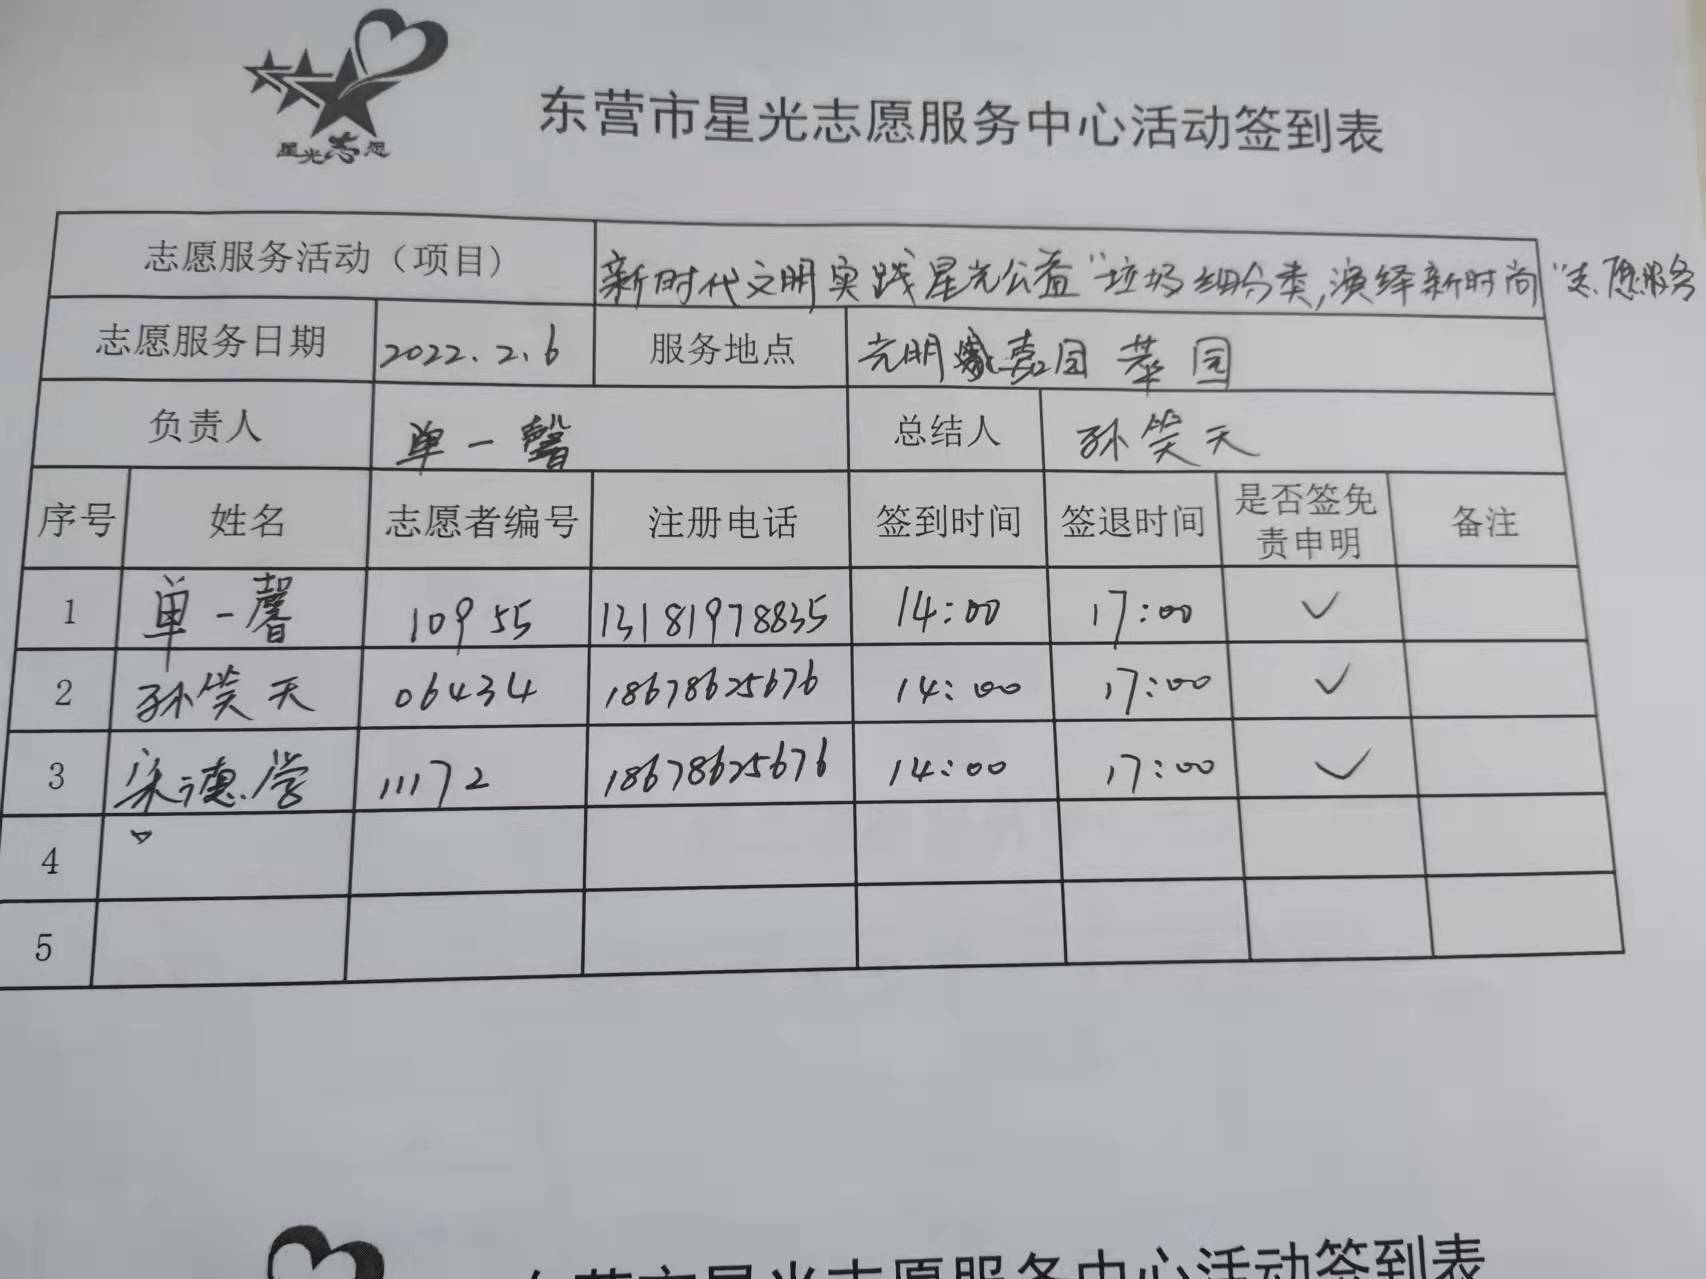 星光志愿
东营市星光志愿服务中心活动签到表
志愿服务活动（项目） 新时代文明实践星光公益"垃圾细分类,演绎新时尚"志愿服务
志愿服务日期 2022.2.6 服务地点 光明嘉园 菜园
负责人 单一馨 总结人 孙笑天
序号 姓名 志愿者编号 注册电话 签到时间 签退时间 是否签免责申明 备注
1 单一馨 10955 13181978835 14:00 17:00 ✓
2 孙笑天 06434 18678625676 14:00 17:00 ✓
3 宋德学 11172 18678625676 14:00 17:00 ✓
4
5
东营市星光志愿服务中心活动签到表